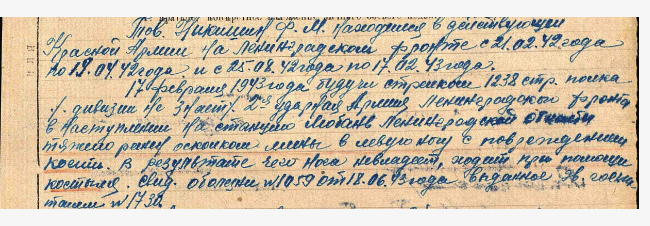 Тов. Никишин Ф. М. находился в действующей
Красной Армии на Ленинградском фронте с 21.02.42 года
по 19.04.42 года и с 25.08.42 года по 17.02.43 года.
17 февраля 1943 года будучи стрелком 1238 стр. полка
дивизии не знает). 2я ударная Армия Ленинградского фронта
в наступлении на станцию Мобань Ленинградской области
тяжело ранен осколком мины в левую ногу с повреждением
кости. в результате чего нога не владеет, ходит при помощи
костыля. свид. о болезни № 1059 от 18.06.43 года выданное Эв. госпи
талем № 1730.